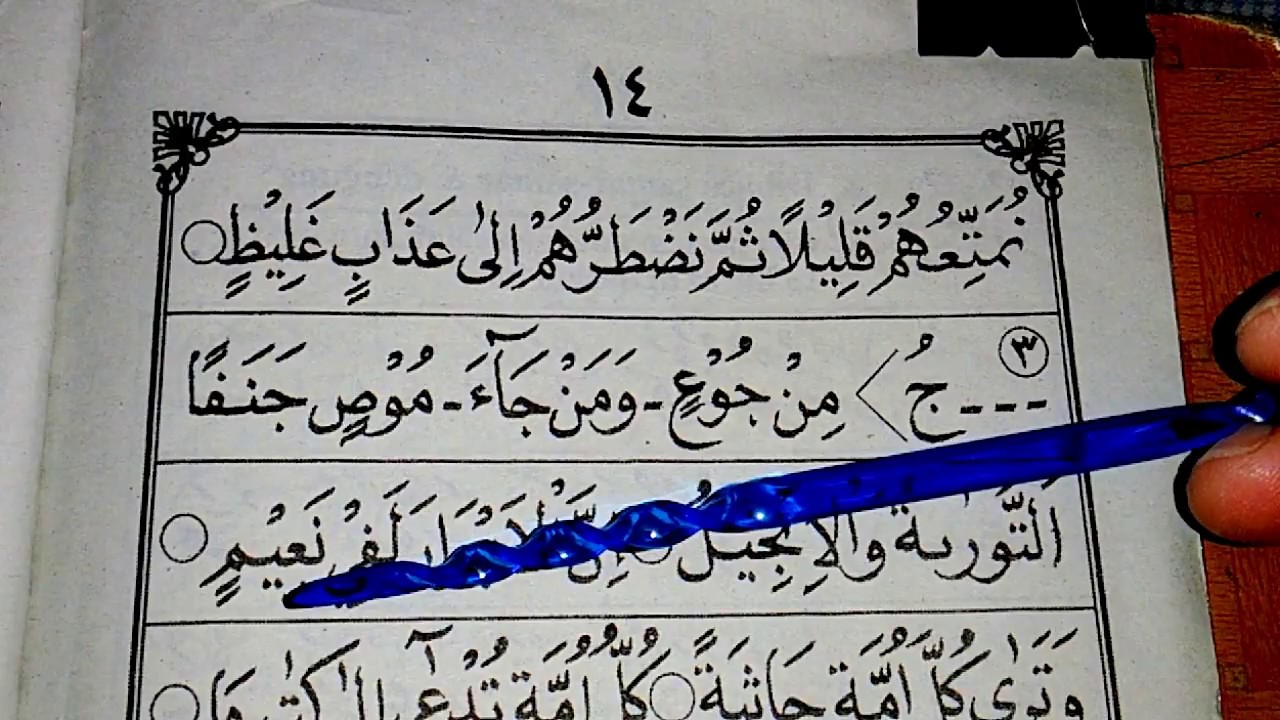 ١٤
نُمَتِّعُهُمْ قَلِيْلًا ثُمَّ نَضْطَرُّهُمْ اِلٰى عَذَابٍ غَلِيْظٍ
٣ --- جُ > مِنْ جُوْعٍ - وَمَنْ جَآءَ - مُوْصٍ جَنَفًا
اَلتَّوْرٰىةَ وَالْاِنْجِيْلَ اِنَّ الْاَبْرَارَ لَفِيْ نَعِيْمٍ
وَتَرٰى كُلَّ اُمَّةٍ جَاثِيَةً كُلُّ اُمَّةٍ تُدْعٰٓى اِلٰى كِتٰبِهَا